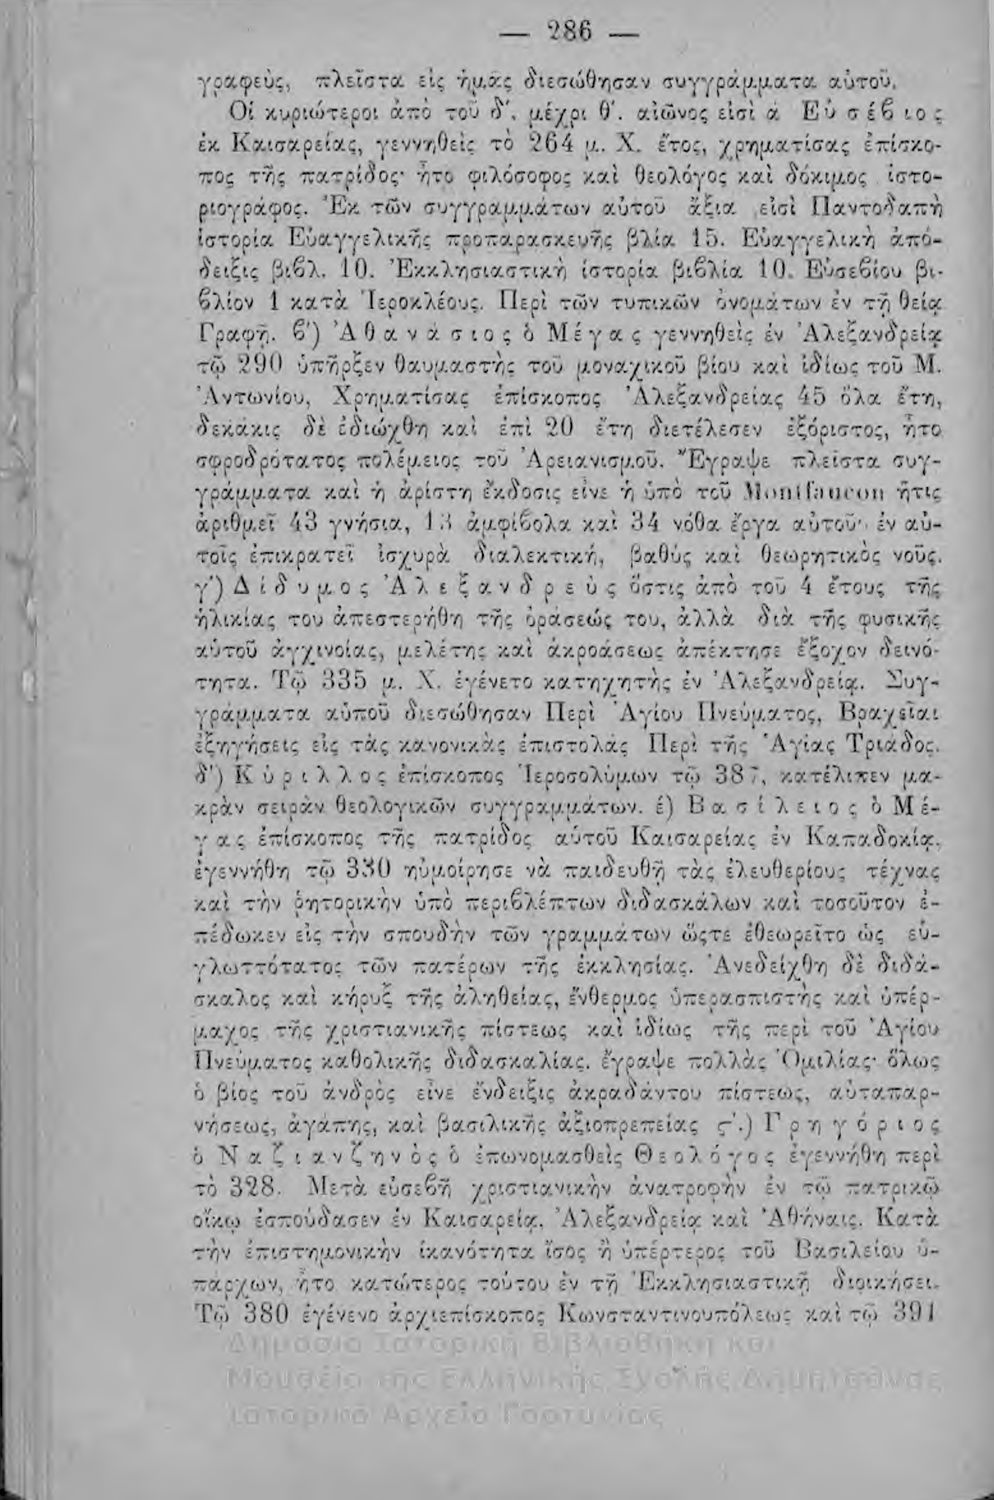 — 286 —
γραφεὺς, πλεῖστα εἰς ἡμᾶς διεσώθησαν συγγράμματα αὐτοῦ.
Οἱ κυριώτεροι ἀπὸ τοῦ δ΄. μέχρι θ΄. αἰῶνος εἰσὶ ά Εὐσέβιος
ἐκ Καισαρείας, γεννηθεὶς τὸ 264 μ. Χ. ἔτος, χρηματίσας ἐπίσκο-
πος τῆς πατρίδος· ἦτο φιλόσοφος καὶ θεολόγος καὶ δόκιμος ἱστο-
ριογράφος. Ἐκ τῶν συγγραμμάτων αὐτοῦ ἄξια εἰσὶ Παντοδαπὴ
ἱστορία Εὐαγγελικῆς προπαρασκευῆς βλία 15. Εὐαγγελικὴ ἀπό-
δειξις βιβλ. 10. Ἐκκλησιαστικὴ ἱστορία βιβλία 10. Εὐσεβίου βι-
βλίον 1 κατὰ Ἱεροκλέους. Περὶ τῶν τυπικῶν ὀνομάτων ἐν τῇ θείᾳ
Γραφῇ. β΄) Ἀθανάσιος ὁ Μέγας γεννηθεὶς ἐν Ἀλεξανδρείᾳ
τῷ 290 ὑπῆρξεν θαυμαστὴς τοῦ μοναχικοῦ βίου καὶ ἰδίως τοῦ Μ.
Ἀντωνίου, Χρηματίσας ἐπίσκοπος Ἀλεξανδρείας 45 ὅλα ἔτη,
δεκάκις δὲ ἐδιώχθη καὶ ἐπὶ 20 ἔτη διετέλεσεν ἐξόριστος, ἦτο
σφροδρότατος πολέμειος τοῦ Ἀρειανισμοῦ. Ἔγραψε πλεῖστα συγ-
γράμματα καὶ ἡ ἀρίστη ἔκδοσις εἶνε ἡ ὑπὸ τοῦ Montfaucon ἥτις
ἀριθμεῖ 43 γνήσια, 13 ἀμφίβολα καὶ 34 νόθα ἔργα αὐτοῦ· ἐν αὐ-
τοῖς ἐπικρατεῖ ἰσχυρὰ διαλεκτική, βαθὺς καὶ θεωρητικὸς νοῦς.
γ΄) Δίδυμος Ἀλεξανδρεὺς ὅστις ἀπὸ τοῦ 4 ἔτους τῆς
ἡλικίας του ἀπεστερήθη τῆς ὁράσεώς του, ἀλλὰ διὰ τῆς φυσικῆς
αὐτοῦ ἀγχινοίας, μελέτης καὶ ἀκροάσεως ἀπέκτησε ἔξοχον δεινό-
τητα. Τῷ 335 μ. Χ. ἐγένετο κατηχητὴς ἐν Ἀλεξανδρείᾳ. Συγ-
γράμματα αὐποῦ διεσώθησαν Περὶ Ἁγίου Πνεύματος, Βραχεῖαι
ἐξηγήσεις εἰς τὰς κανονικὰς ἐπιστολὰς Περὶ τῆς Ἁγίας Τριάδος.
δ΄) Κύριλλος ἐπίσκοπος Ἱεροσολύμων τῷ 387, κατέλιπεν μα-
κρὰν σειρὰν θεολογικῶν συγγραμμάτων. έ) Βασίλειος ὁ Μέ-
γας ἐπίσκοπος τῆς πατρίδος αὐτοῦ Καισαρείας ἐν Καπαδοκίᾳ.
ἐγεννήθη τῷ 330 ηὐμοίρησε νὰ παιδευθῇ τὰς ἐλευθερίους τέχνας
καὶ τὴν ῥητορικὴν ὑπὸ περιβλέπτων διδασκάλων καὶ τοσοῦτον ἐ-
πέδωκεν εἰς τὴν σπουδὴν τῶν γραμμάτων ὥςτε ἐθεωρεῖτο ὡς εὐ-
γλωττότατος τῶν πατέρων τῆς ἐκκλησίας. Ἀνεδείχθη δὲ διδά-
σκαλος καὶ κήρυξ τῆς ἀληθείας, ἔνθερμος ὑπερασπιστὴς καὶ ὑπέρ-
μαχος τῆς χριστιανικῆς πίστεως καὶ ἰδίως τῆς περὶ τοῦ Ἁγίου
Πνεύματος καθολικῆς διδασκαλίας. ἔγραψε πολλὰς Ὁμιλίας· ὅλως
ὁ βίος τοῦ ἀνδρὸς εἶνε ἔνδειξις ἀκραδάντου πίστεως, αὐταπαρ-
νήσεως, ἀγάπης, καὶ βασιλικῆς ἀξιοπρεπείας ς΄.) Γρηγόριος
ὁ Ναζιανζηνὸς ὁ ἐπωνομασθεὶς Θεολόγος ἐγεννήθη περὶ
τὸ 328. Μετὰ εὐσεβῆ χριστιανικὴν ἀνατροφὴν ἐν τῷ πατρικῷ
οἴκῳ ἐσπούδασεν ἐν Καισαρείᾳ, Ἀλεξανδρείᾳ καὶ Ἀθήναις. Κατὰ
τὴν ἐπιστημονικὴν ἱκανότητα ἴσος ἢ ὑπέρτερος τοῦ Βασιλείου ὑ-
πάρχων, ἦτο κατώτερος τούτου ἐν τῇ Ἐκκλησιαστικῇ διοικήσει.
Τῷ 380 ἐγένενο ἀρχιεπίσκοπος Κωνσταντινουπόλεως καὶ τῷ 391
Δημόσια Ιστορική Βιβλιοθήκη και
Μουσείο της Ελληνικής Σχολής Δημητσάνας
Ιστορικό Αρχείο Γορτυνίας